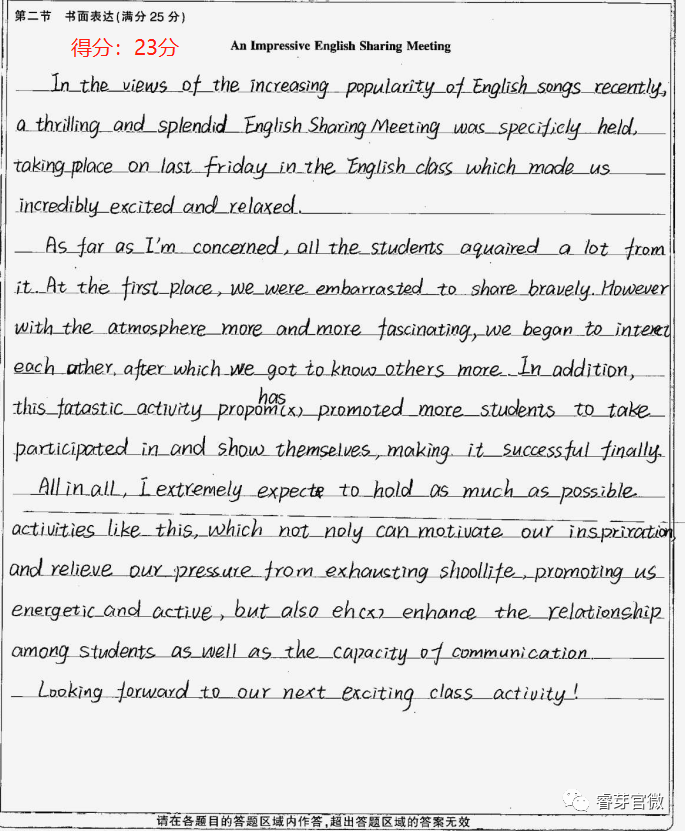 第二节 书面表达(满分 25 分)
得分：23分
An Impressive English Sharing Meeting
In the views of the increasing popularity of English songs recently,
a thrilling and splendid English Sharing Meeting was specificly held,
taking place on last Friday in the English class which made us
incredibly excited and relaxed.
As far as I'm concerned, all the students aquaired a lot from
it. At the first place, we were embarrasted to share bravely. However
with the atmosphere more and more fascinating, we began to interect
each other, after which we got to know others more. In addition,
has
this fatastic activity propom(x) promoted more students to take
participated in and show themselves, making it successful finally.
All in all, I extremely expecte to hold as much as possible
activities like this, which not noly can motivate our inspriration
and relieve our pressure from exhausting shoollife, promoting us
energetic and active, but also eh(x) enhance the relationship
among students as well as the capacity of communication
Looking forward to our next exciting class activity!
睿芽官微
请在各题目的答题区域内作答,超出答题区域的答案无效